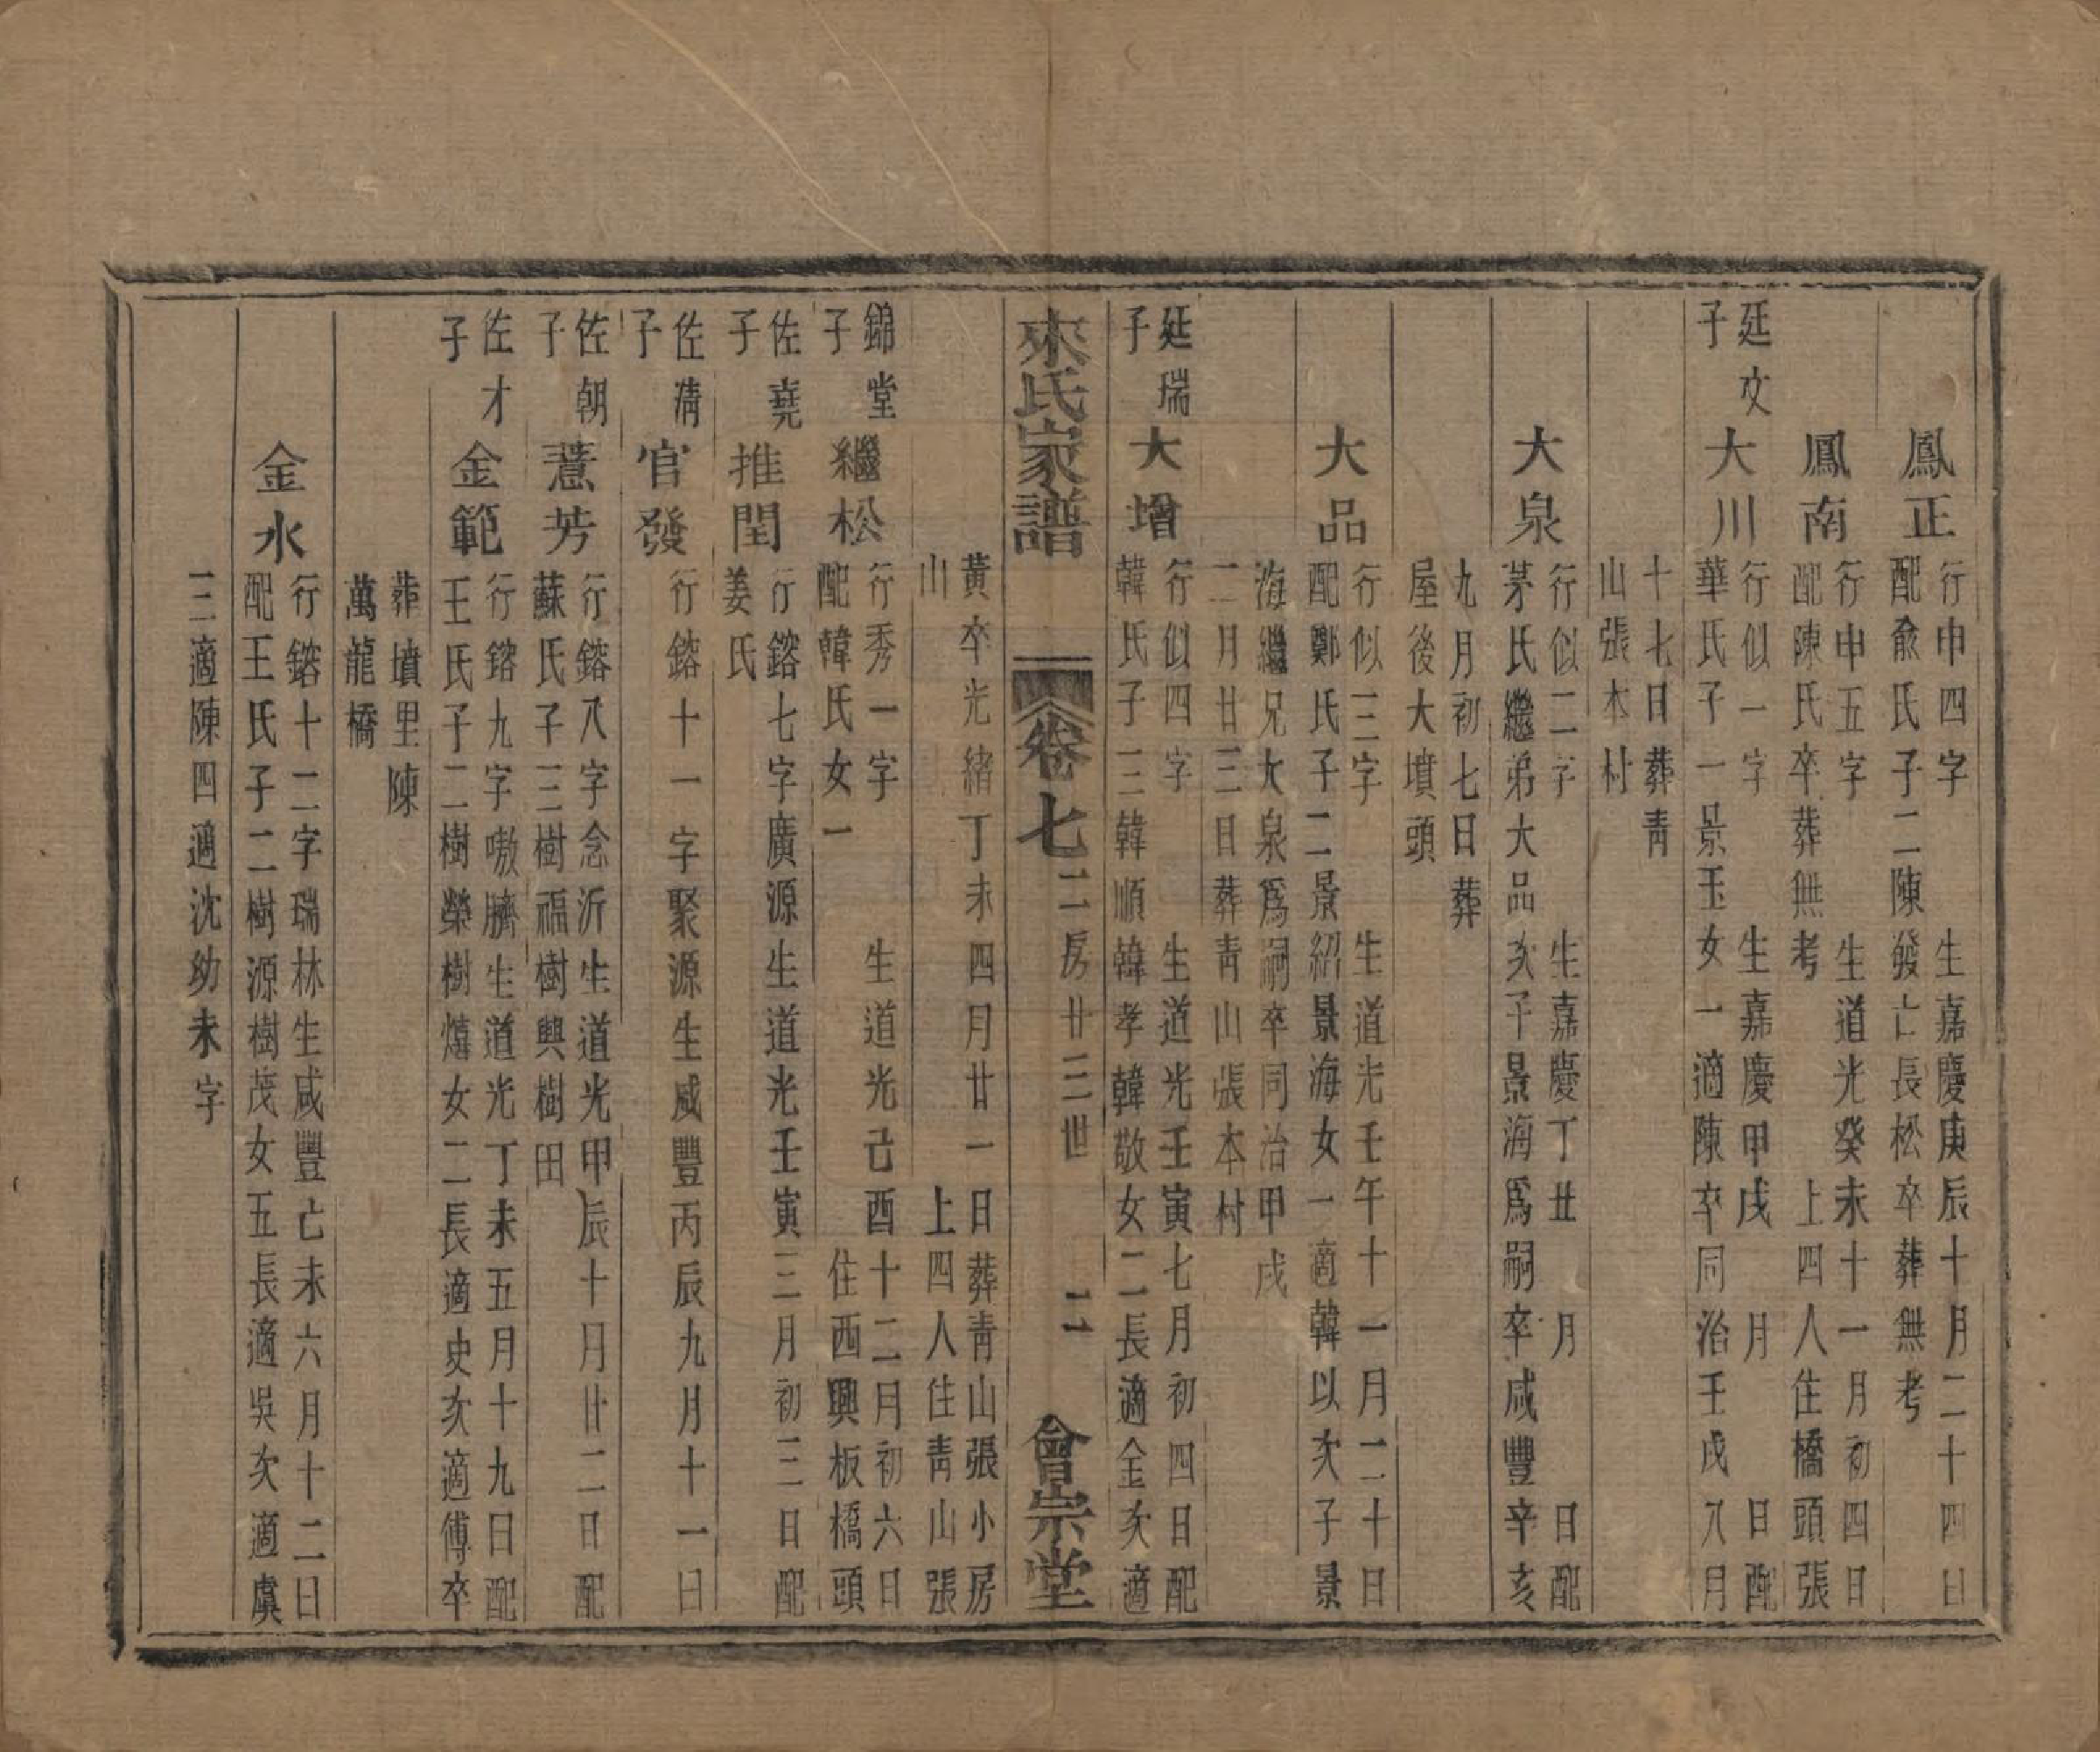 鳳正
行申四字　生嘉慶庚辰十月二十四日
配俞氏子二陳發亡長松卒葬無考
鳳南
行申五字　生道光癸未十一月初四日
配陳氏卒葬無考　上四人住橋頭張
廷文
子
大川
行似一字　生嘉慶甲戌　月　日配
華氏子一景玉女一適陳卒同治壬戌八月
十七日葬青
山張本村
大泉
行似二字　生嘉慶丁丑　月　日配
茅氏繼弟大品次子景海爲嗣卒咸豐辛亥
九月初七日葬
屋後大墳頭
大品
行似三字　生道光壬午十一月二十日
配鄭氏子二景紹景海女一適韓以次子景
海繼兄大泉爲嗣卒同治甲戌
二月廿三日葬青山張本村
廷瑞
子
大增
行似四字　生道光壬寅七月初四日配
韓氏子三韓順韓孝韓敬女二長適金次適
來氏家譜　卷七　二房廿三世　二　會宗堂
黃卒光緒丁未四月廿一日葬青山張小房
山　上四人住青山張
錦堂
子
繼松
行秀一字　生道光己酉十二月初六日
配韓氏女一　住西興板橋頭
佐堯
子
推閏
行鎔七字廣源生道光壬寅三月初三日配
姜氏
佐清
子
官發
行鎔十一字聚源生咸豐丙辰九月十一日
佐朝
子
薏芳
行鎔八字念沂生道光甲辰十月廿二日配
蘇氏子三樹福樹興樹田
佐才
子
金範
行鎔九字嗷臍生道光丁未五月十九日配
王氏子二樹榮樹熺女二長適史次適傅卒
葬墳里陳
萬龍橋
金水
行鎔十二字瑞林生咸豐己未六月十二日
配王氏子二樹源樹茂女五長適吳次適虞
三適陳四適沈幼未字